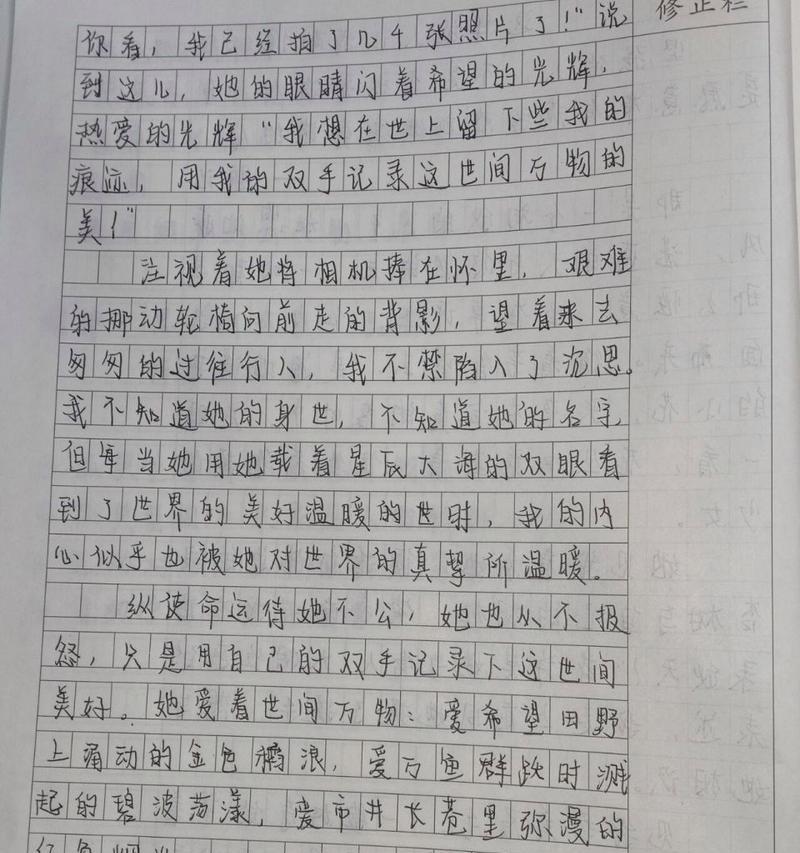 修正栏
你看，我已经拍了几千张照片了！"说
到这儿，她的眼睛闪着希望的光辉，
热爱的光辉"我想在世上留下些我的
痕迹，用我的双手记录这世间万物的
美！"
注视着她将相机捧在怀里，艰难
的挪动轮椅向前走的背影，望着来去
匆匆的过往行人，我不禁陷入了沉思。
我不知道她的身世，不知道她的名字，
但每当她用她载着星辰大海的双眼看
到了世界的美好温暖的世时，我的内
心似乎也被她对世界的真挚所温暖。
纵使命运待她不公，她也从不报
怨，只是用自己的双手记录下这世间
美好。她爱着世间万物：爱希望田野
上涌动的金色稻浪，爱万鱼群跃时溅
起的碧波荡漾，爱市井长巷里弥漫的